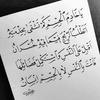 يا خادم الجسم كم تشقى بخدمته
أتطلب الربح مما فيه خسران
أقبل على النفس واستكمل فضائلها
فأنت بالنفس لا بالجسم إنسان